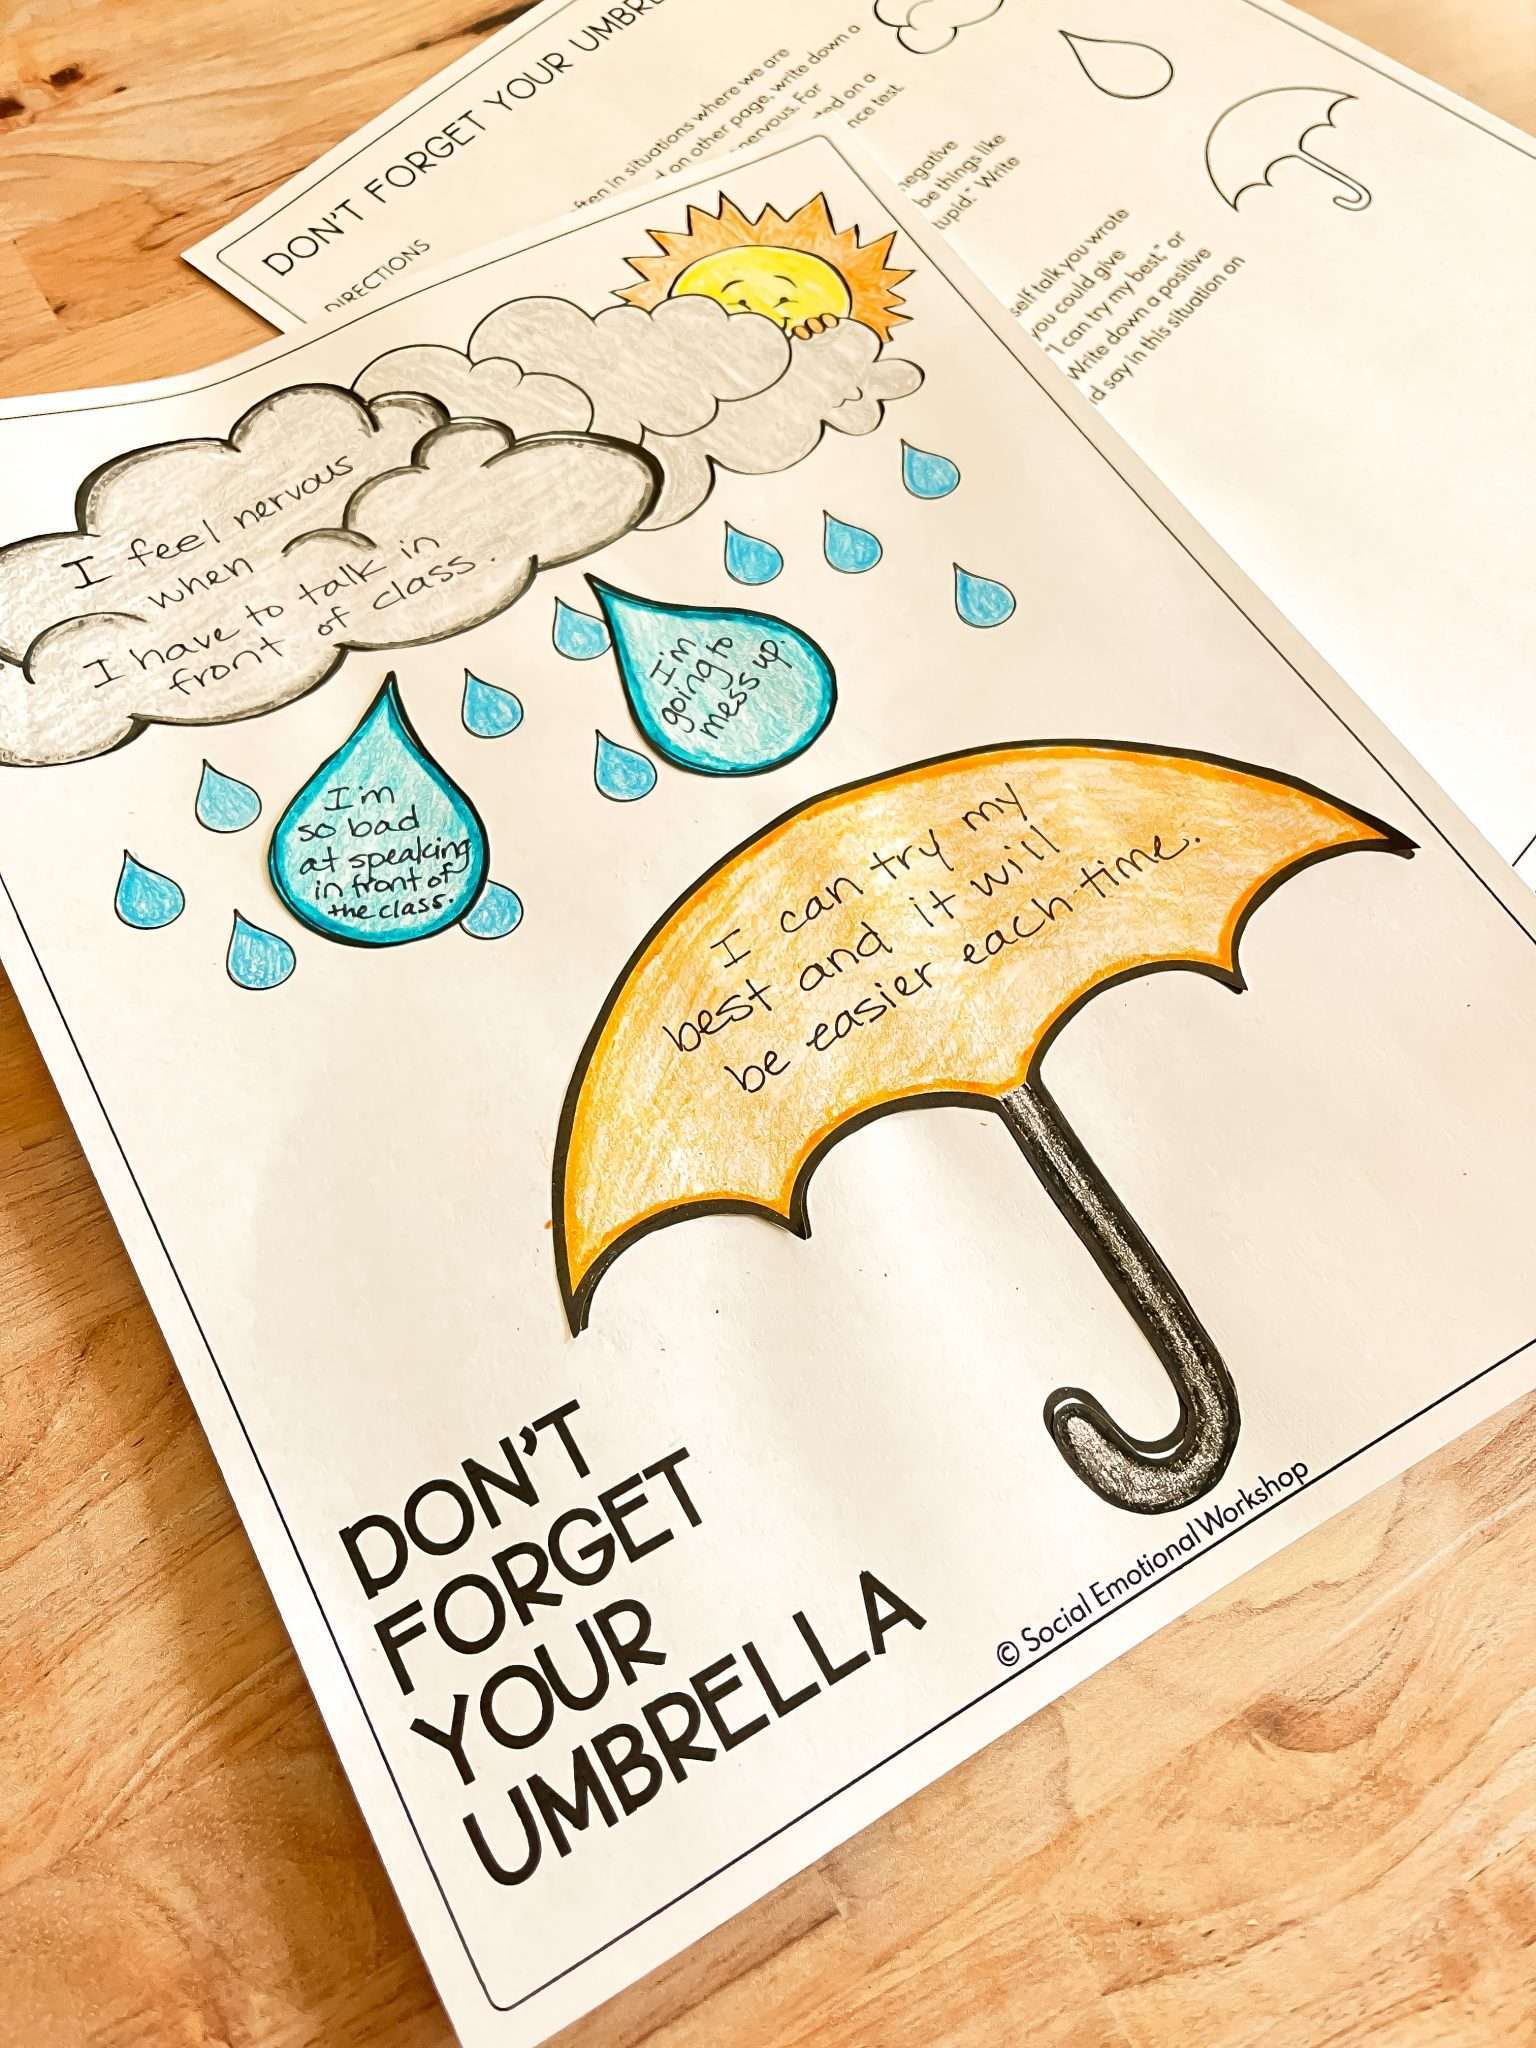 DON'T FORGET YOUR
DIRECTIONS
in situations where we are
on other page, write down a
nervous. For
on a
test.
negative
be things like
Write
self talk you wrote
you could give
"I can try my best," or
Write down a positive
say in this situation on
I feel nervous
when
I have to talk in
front of class.
I'm
going to
mess up.
I'm
so bad
at speaking
in front of
the class.
I can try my
best and it will
be easier each time.
DON'T
FORGET
YOUR
UMBRELLA
© Social Emotional Workshop